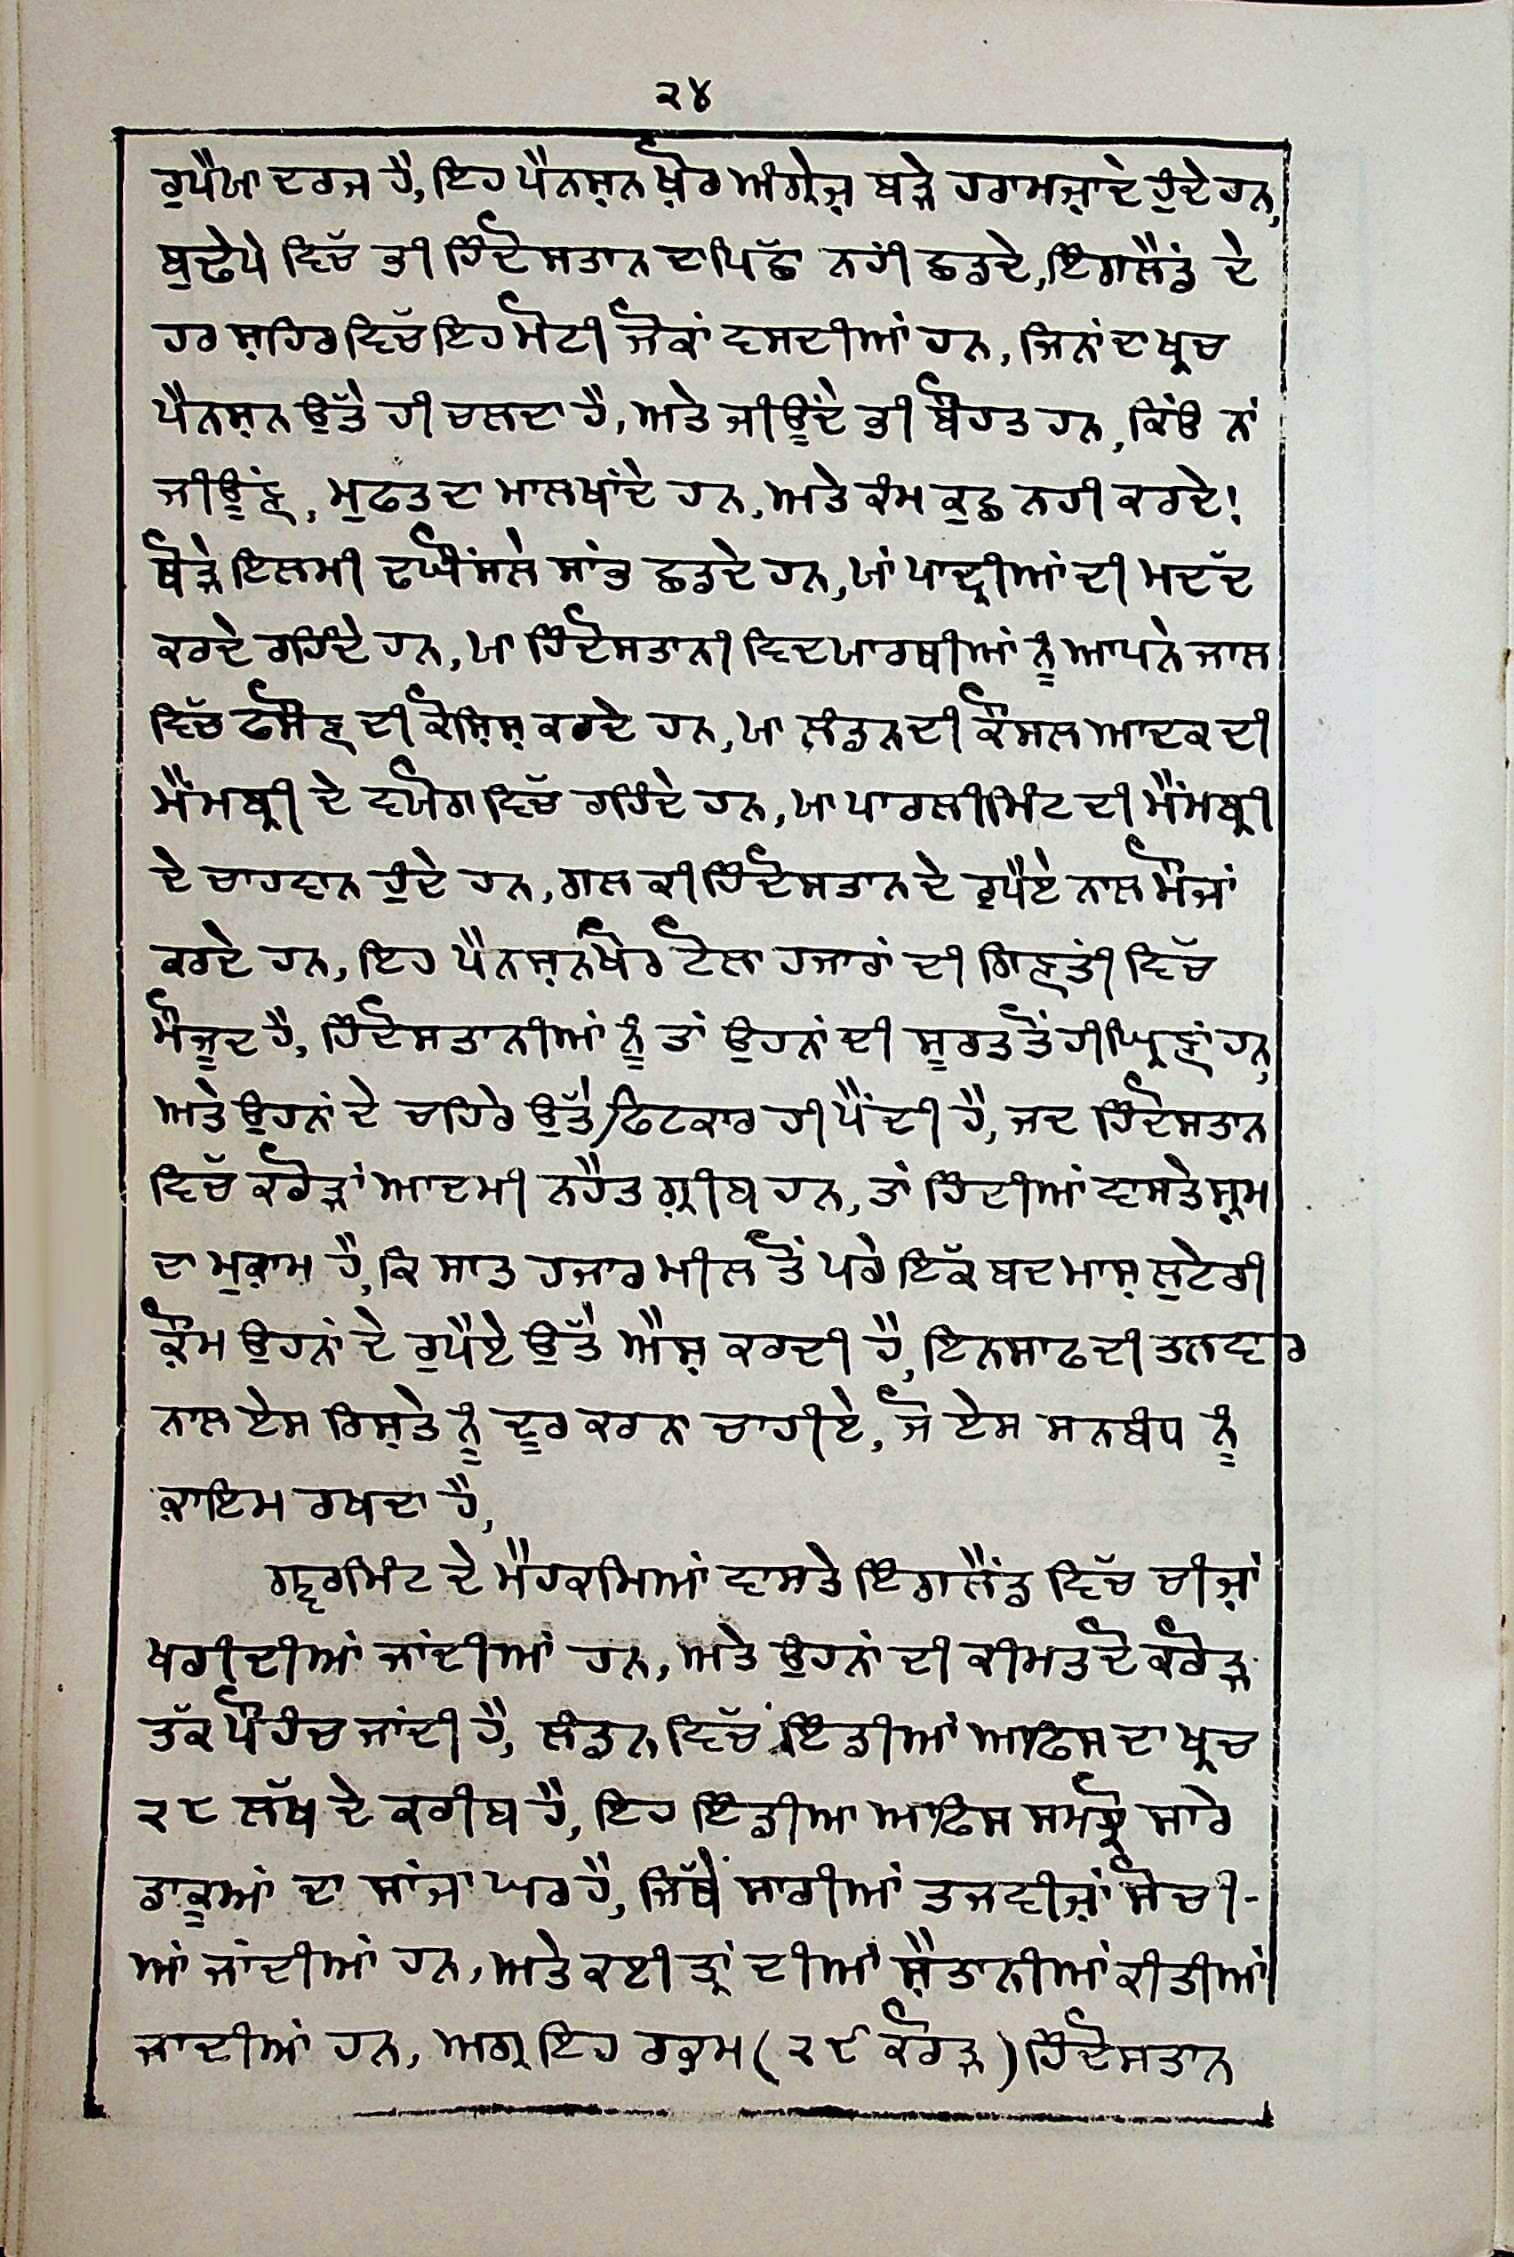 ੨੪
ਰੁਪੈਯਾ ਦਰਜ ਹੈ, ਇਹ ਪੈਨਸ਼ਨ ਖ਼ੋਰ ਅੰਗ੍ਰੇਜ਼ ਬੜੇ ਹਰਾਮਜ਼ਾਦੇ ਹੁੰਦੇ ਹਨ,
ਬੁਢੇਪੇ ਵਿਚੱ ਭੀ ਹਿੰਦੋਸਤਾਨ ਦਾ ਪਿਛੱਾ ਨਹਂੀ ਛਡਦੇ, ਇੰਗਲੈਂਡ ਦੇ
ਹਰ ਸ਼ਹਿਰ ਵਿਚੱ ਇਹ ਮੋਟੀ ਜੋਕਾਂ ਵਸਦੀਆਂ ਹਨ, ਜਿਨਾਂ ਦਾ ਖ੍ਰਚ
ਪੈਨਸ਼ਨ ਉਤੱੇ ਹੀ ਚਲਦਾ ਹੈ, ਅਤੇ ਜੀਊਂਦੇ ਭੀ ਬੌਹਤ ਹਨ, ਕਿੰਉ ਨਾਂ
ਜੀਊਂਣ, ਮੁਫਤ ਦਾ ਮਾਲ ਖਾਂਦੇ ਹਨ, ਅਤੇ ਕੰਮ ਕੁਛ ਨਹੀ ਕਰਦੇ!
ਥੋੜੇ ਇਲਮੀ ਢਘੌਂਸਲੇ ਸਾਂਭ ਛਡਦੇ ਹਨ, ਯਾਂ ਪਾਦ੍ਰੀਆਂ ਦੀ ਮਦਦੱ
ਕਰਦੇ ਰਹਿੰਦੇ ਹਨ, ਯਾ ਹਿੰਦੋਸਤਾਨੀ ਵਿਦਯਾਰਥੀਆਂ ਨੂੰ ਆਪਨੇ ਜਾਲ
ਵਿਚੱ ਫਸੌਣ ਦੀ ਕੋਸ਼ਿਸ਼ ਕਰਦੇ ਹਨ, ਯਾ ਲੰਡਨ ਦੀ ਕੌਂਸਲ ਆਦਕ ਦੀ
ਮੈਂਮਬ੍ਰੀ ਦੇ ਵਯੋਗ ਵਿਚੱ ਰਹਿੰਦੇ ਹਨ, ਯਾ ਪਾਰਲੀਮਿੰਟ ਦੀ ਮੈਂਮਬ੍ਰੀ
ਦੇ ਚਾਹਵਾਨ ਹੁੰਦੇ ਹਨ, ਗਲ ਕੀ ਹਿੰਦੋਸਤਾਨ ਦੇ ਰੁਪੈਏ ਨਾਲ ਮੌਜਾਂ
ਕਰਦੇ ਹਨ, ਇਹ ਪੈਨਸ਼ਨਖੋਰ ਟੋਲਾ ਹਜਾਰਾਂ ਦੀ ਗਿਣਤੀ ਵਿਚੱ
ਮੌਜੂਦ ਹੈ, ਹਿੰਦੋਸਤਾਨੀਆਂ ਨੂੰ ਤਾਂ ਉਹਨਾਂ ਦੀ ਸੂਰਤ ਤੋਂ ਹੀ ਘ੍ਰਿਣਾਂ ਹਨ,
ਅਤੇ ਉਹਨਾਂ ਦੇ ਚਹਿਰੇ ਉਤੱੇ ਫਿਟਕਾਰ ਹੀ ਪੈਂਦੀ ਹੈ, ਜਦ ਹਿੰਦੋਸਤਾਨ
ਵਿਚੱ ਕਰੋੜਾਂ ਆਦਮੀ ਨਹੈਤ ਗ਼੍ਰੀਬ ਹਨ, ਤਾਂ ਹਿੰਦੀਆਂ ਵਾਸਤੇ ਸ਼੍ਰਮ
ਦਾ ਮੁਕ਼ਾਮ ਹੈ, ਕਿ ਸਾਤ ਹਜਾਰ ਮੀਲ ਤੋਂ ਪਰੇ ਇਕੱ ਬਦਮਾਸ਼ ਲੁਟੇਰੀ
ਕ਼ੌਮ ਉਹਨਾਂ ਦੇ ਰੁਪੈਏ ਉਤੱੇ ਐਸ਼ ਕਰਦੀ ਹੈ, ਇਨਸਾਫ ਦੀ ਤਲਵਾਰ
ਨਾਲ ਏਸ ਰਿਸ਼ਤੇ ਨੂੰ ਦੂਰ ਕਰਨਾ ਚਾਹੀਏ, ਜੋ ਏਸ ਸਨਬੰਧ ਨੂੰ
ਕ਼ਾਇਮ ਰਖਦਾ ਹੈ,
ਗਵ੍ਰਮਿੰਟ ਦੇ ਮੈਹਕਮਿਆਂ ਵਾਸਤੇ ਇੰਗਲੈਂਡ ਵਿਚੱ ਚੀਜ਼ਾਂ
ਖਰੀਦੀਆਂ ਜਾਂਦੀਆਂ ਹਨ, ਅਤੇ ਉਹਨਾਂ ਦੀ ਕੀਮਤ ਦੋ ਕਰੋੜ
ਤਕੱ ਪੌਹੰਚ ਜਾਂਦੀ ਹੈ, ਲੰਡਨ ਵਿਚੱ ਇੰਡੀਆਂ ਆਫਿਸ ਦਾ ਖ੍ਰਚ
੨੮ ਲੱਖ ਦੇ ਕਰੀਬ ਹੈ, ਇਹ ਇੰਡੀਆ ਆਫਿਸ ਸਮਝੋ ਸਾਰੇ
ਡਾਕੂਆਂ ਦਾ ਸਾਂਜਾ ਘਰ ਹੈ, ਜਿਥੱੇਂ ਸਾਰੀਆਂ ਤਜਵੀਜ਼ਾਂ ਸੋਚੀ-
ਆਂ ਜਾਂਦੀਆਂ ਹਨ, ਅਤੇ ਕਈ ਤ੍ਰਾਂ ਦੀਆਂ ਸ਼ੈਤਾਨੀਆਂ ਕੀਤੀਆਂ
ਜਾਦੀਆਂ ਹਨ, ਅਗ੍ਰ ਇਹ ਰਕ਼ਮ (੨੯ ਕਰੋੜ) ਹਿੰਦੋਸਤਾਨ